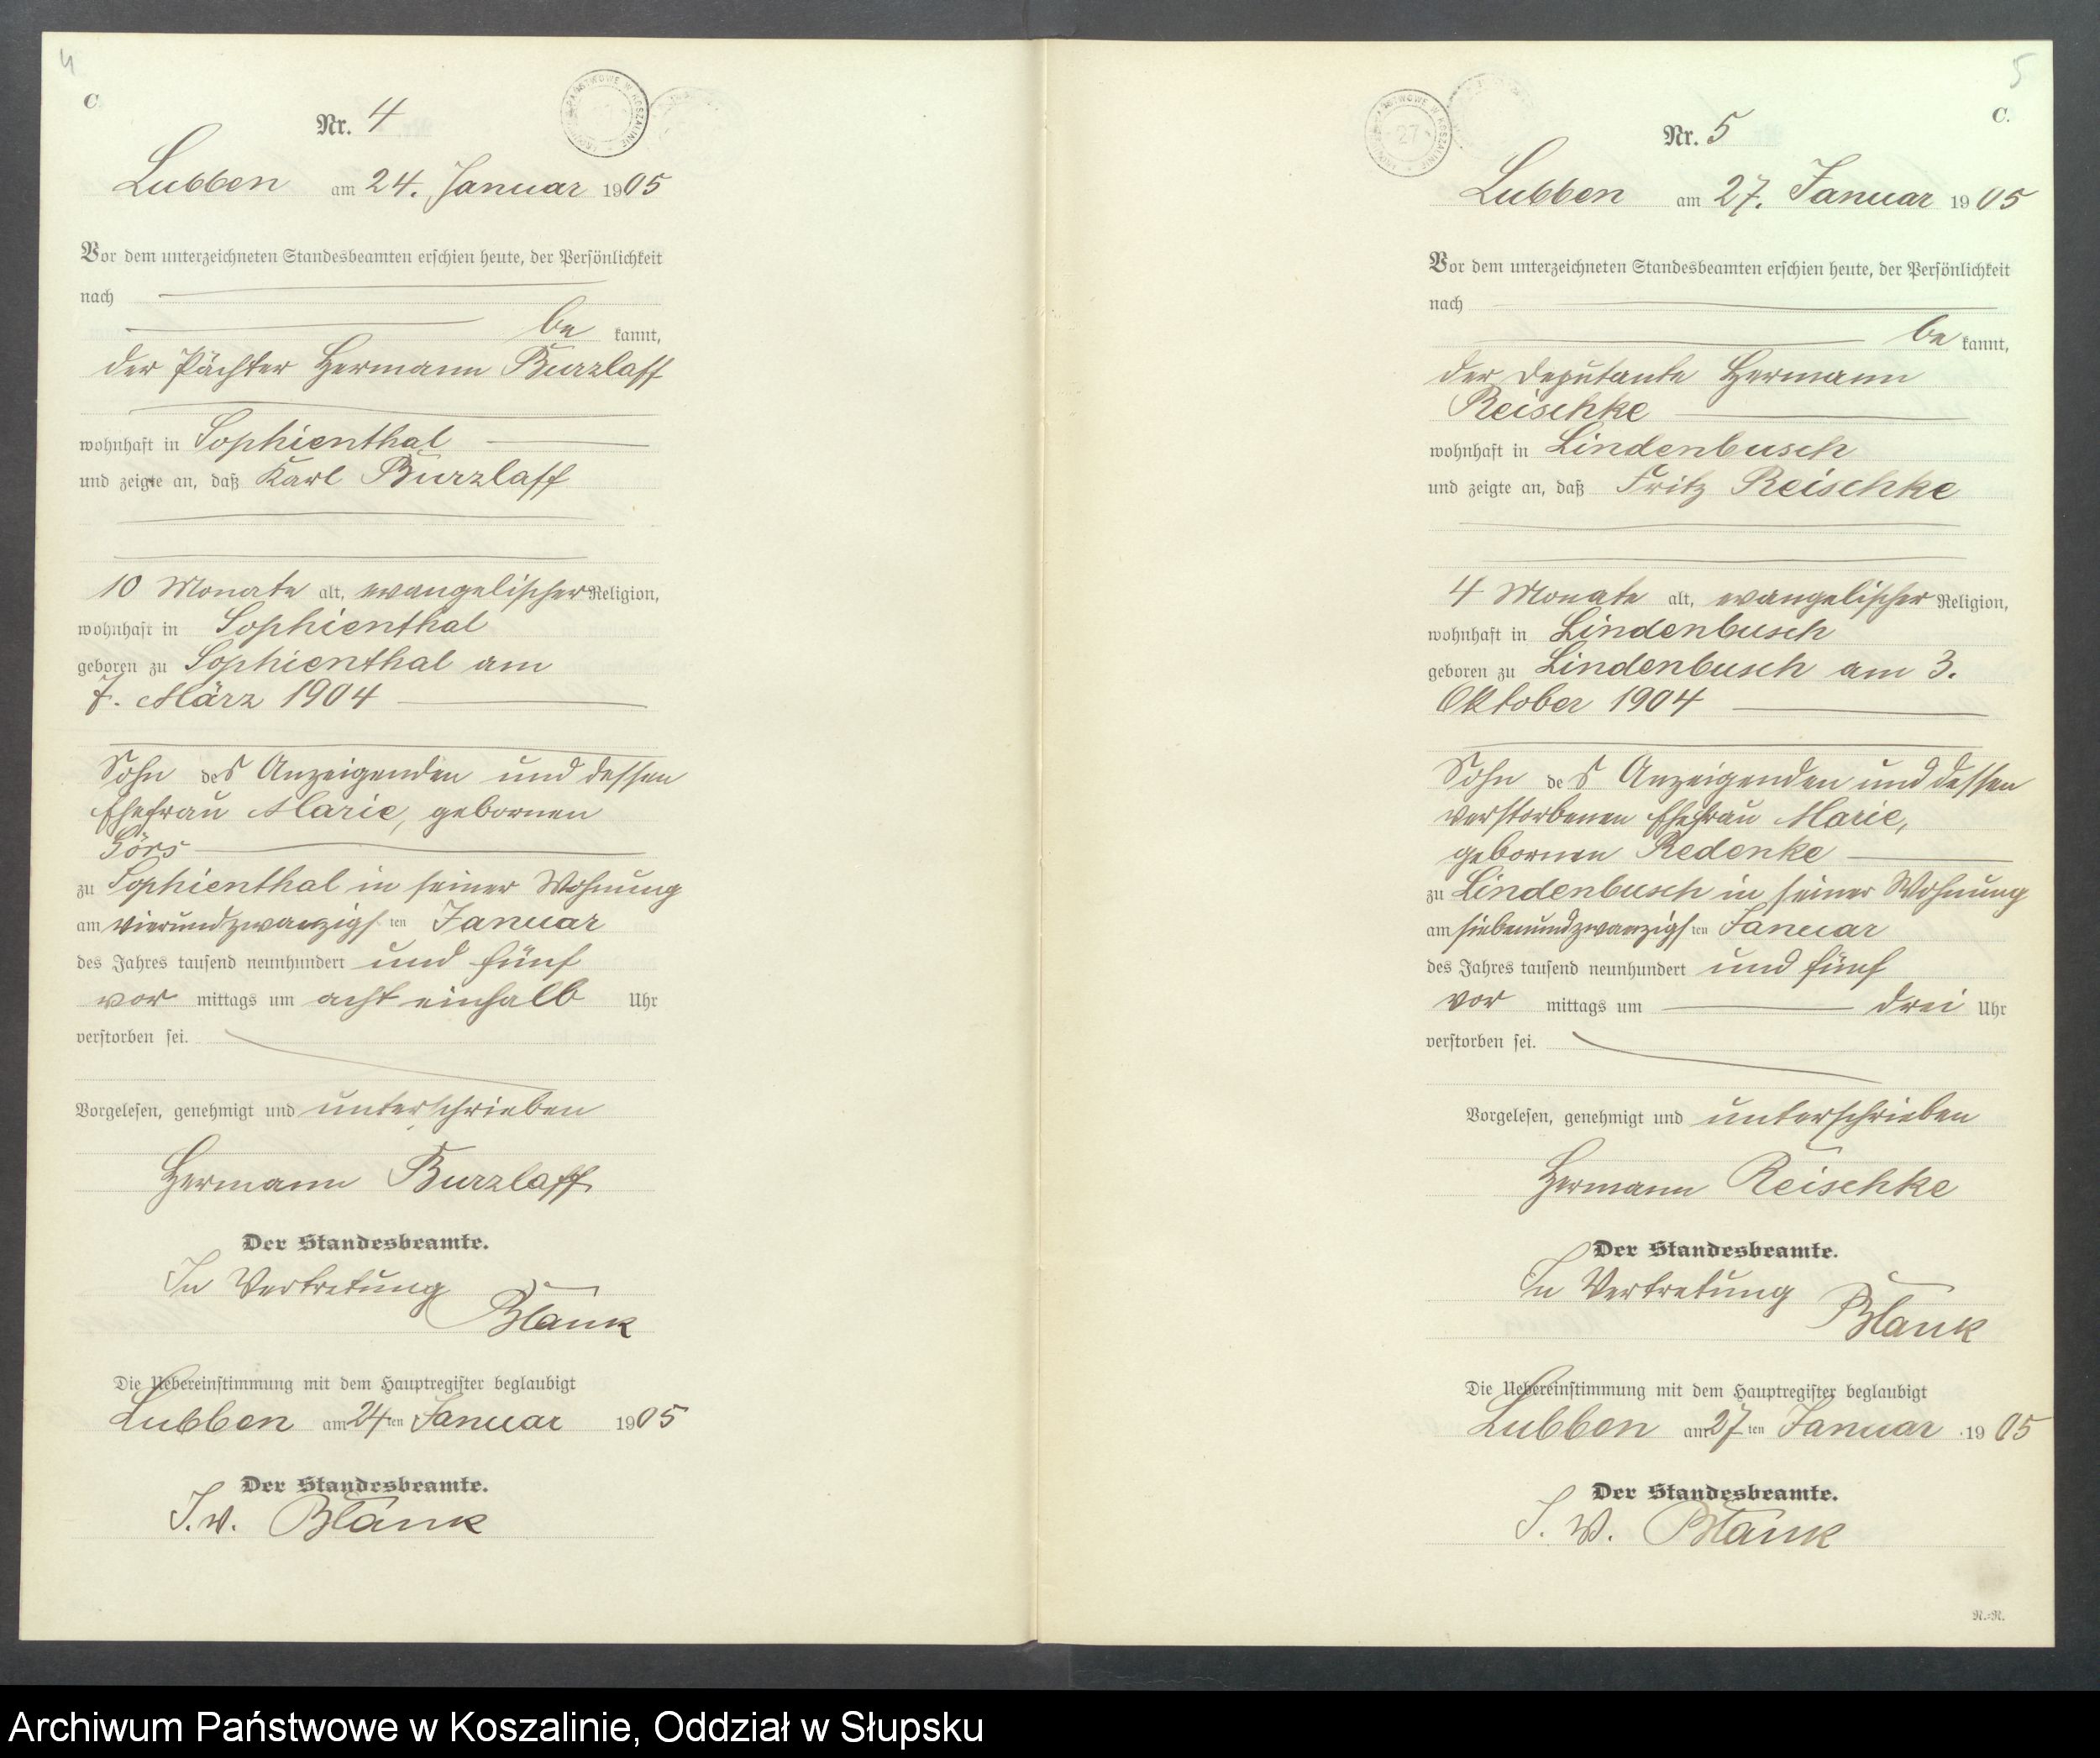 4
C.
Nr. 4
Lubben am 24. Januar 1905
Vor dem unterzeichneten Standesbeamten erschien heute, der Persönlichkeit
nach
be kannt,
der Pächter Hermann Burzlaff
wohnhaft in Sophienthal
und zeigte an, daß Karl Burzlaff
10 Monate alt, evangelischer Religion,
wohnhaft in Sophienthal
geboren zu Sophienthal am
7. März 1904
Sohn des Anzeigenden und dessen
Ehefrau Marie, gebornen
Görs
zu Sophienthal in seiner Wohnung
am vierundzwanzigsten Januar
des Jahres tausend neunhundert und fünf
vor mittags um acht einhalb Uhr
verstorben sei.
Vorgelesen, genehmigt und unterschrieben
Hermann Burzlaff
Der Standesbeamte.
In Vertretung
Blank
Die Uebereinstimmung mit dem Hauptregister beglaubigt
Lubben am 24ten Januar 1905
Der Standesbeamte.
I. V. Blank
5
C.
Nr. 5
Lubben am 27. Januar 1905
Vor dem unterzeichneten Standesbeamten erschien heute, der Persönlichkeit
nach
be kannt,
der Deputante Hermann
Reischke
wohnhaft in Lindenbusch
und zeigte an, daß Fritz Reischke
4 Monate alt, evangelischer Religion,
wohnhaft in Lindenbusch
geboren zu Lindenbusch am 3.
Oktober 1904
Sohn des Anzeigenden und dessen
verstorbenen Ehefrau Marie,
gebornen Redenke
zu Lindenbusch in seiner Wohnung
am siebenundzwanzigsten Januar
des Jahres tausend neunhundert und fünf
vor mittags um drei Uhr
verstorben sei.
Vorgelesen, genehmigt und unterschrieben
Hermann Reischke
Der Standesbeamte.
In Vertretung
Blank
Die Uebereinstimmung mit dem Hauptregister beglaubigt
Lubben am 27ten Januar 1905
Der Standesbeamte.
I. V. Blank
N.=N.
Archiwum Państwowe w Koszalinie, Oddział w Słupsku